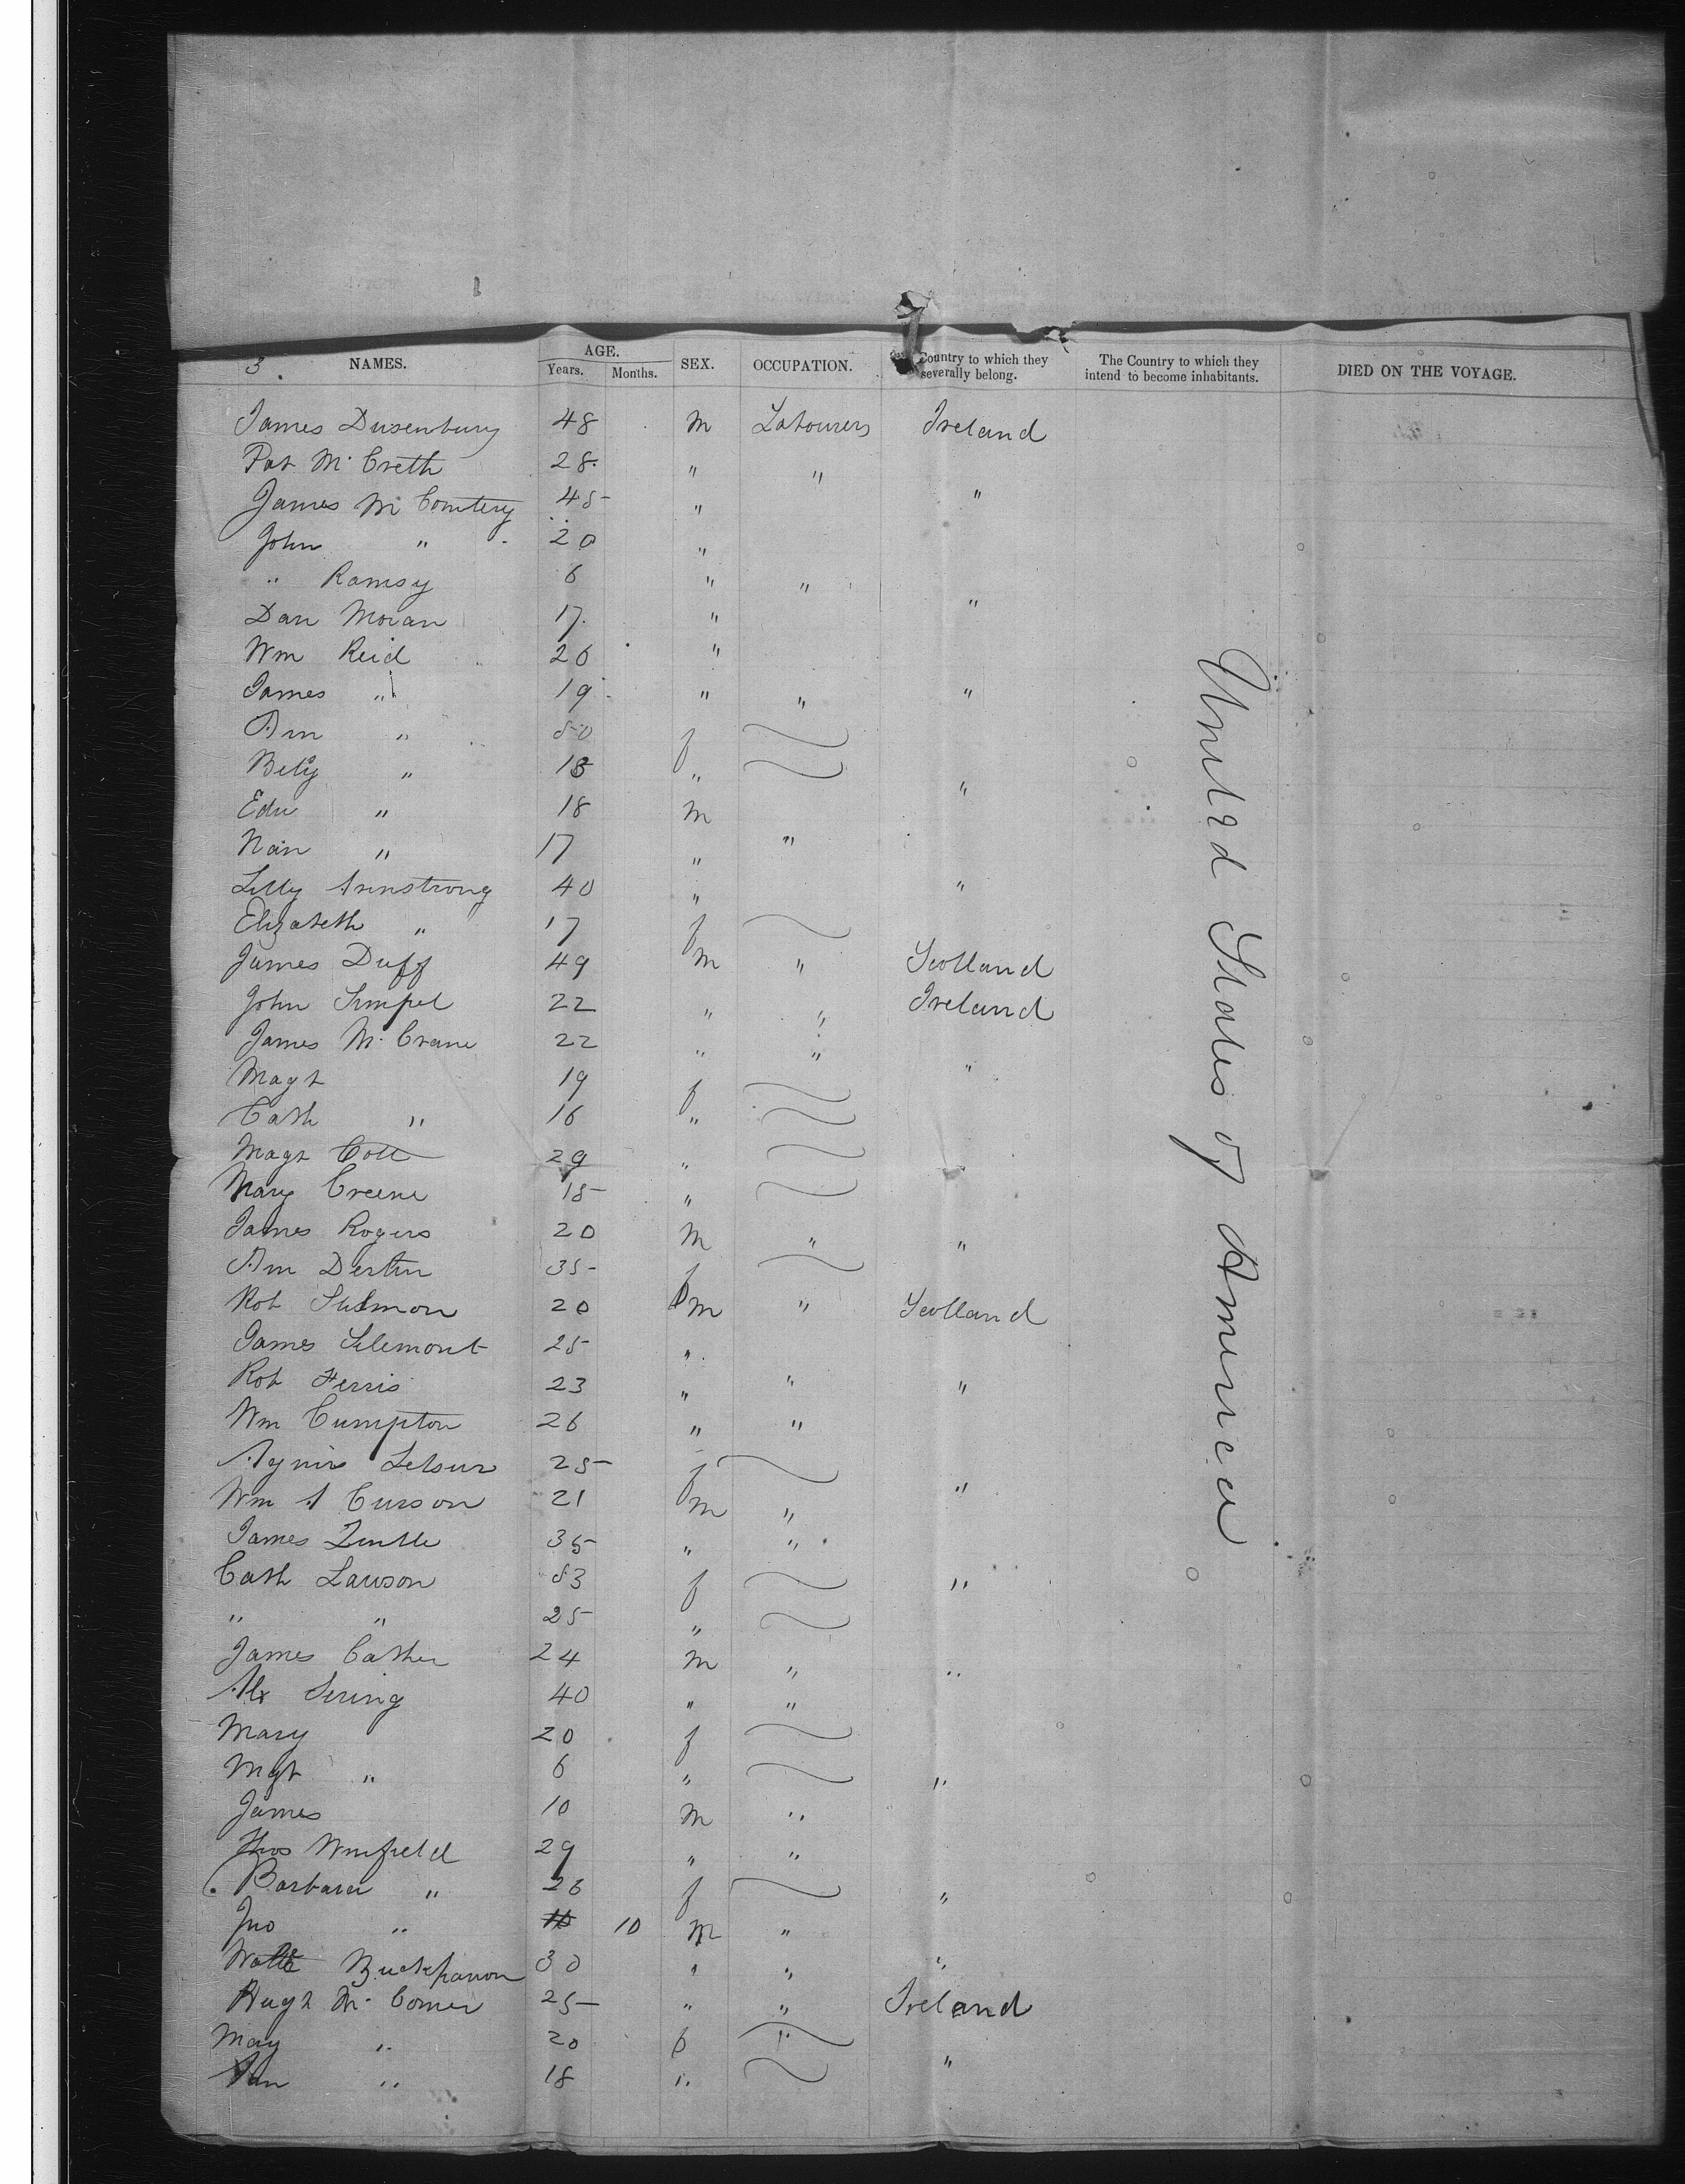 3. NAMES. AGE. Years. Months. SEX. OCCUPATION. Country to which they severally belong. The Country to which they intend to become inhabitants. DIED ON THE VOYAGE.
James Dusenbury 48 m Labourers Ireland
Pat Mc Creth 28 " "
James Mc Comtery 45 " "
John " 20 "
" Ramsy 6 " " "
Dan Moran 17 "
Wm Reid 26 "
James " 19 " " "
Ann " 50 f
Bety " 18 " "
Edw " 18 m
Nan " 17 " "
Lilly Armstrong 40 " "
Elizabeth " 17 f
James Duff 49 m " Scotland
John Simpel 22 " " Ireland
James Mc Crane 22 " " "
Magt 19 f
Cath " 16 "
Magt Coll 29 " "
Mary Creene 15 "
James Rogers 20 m " "
Ann 35 f
Rob 20 m " Scotland
James 25 "
Rob Ferris 23 " " "
Wm Cumpton 26 " "
25 f "
Wm A Curson 21 m "
James 35 " "
Cath Lawson 53 f "
" " 25 "
James Cather 24 m " "
Alx 40 " "
Mary 20 f
Mgt " 6 " "
James 10 m "
Thos Winfield 29 " "
Barbara " 26 f "
Jno " 10 m "
30 " " "
Hugh Mc Comer 25 " " Ireland
May " 20 f "
Ann " 18 " "
United States of America